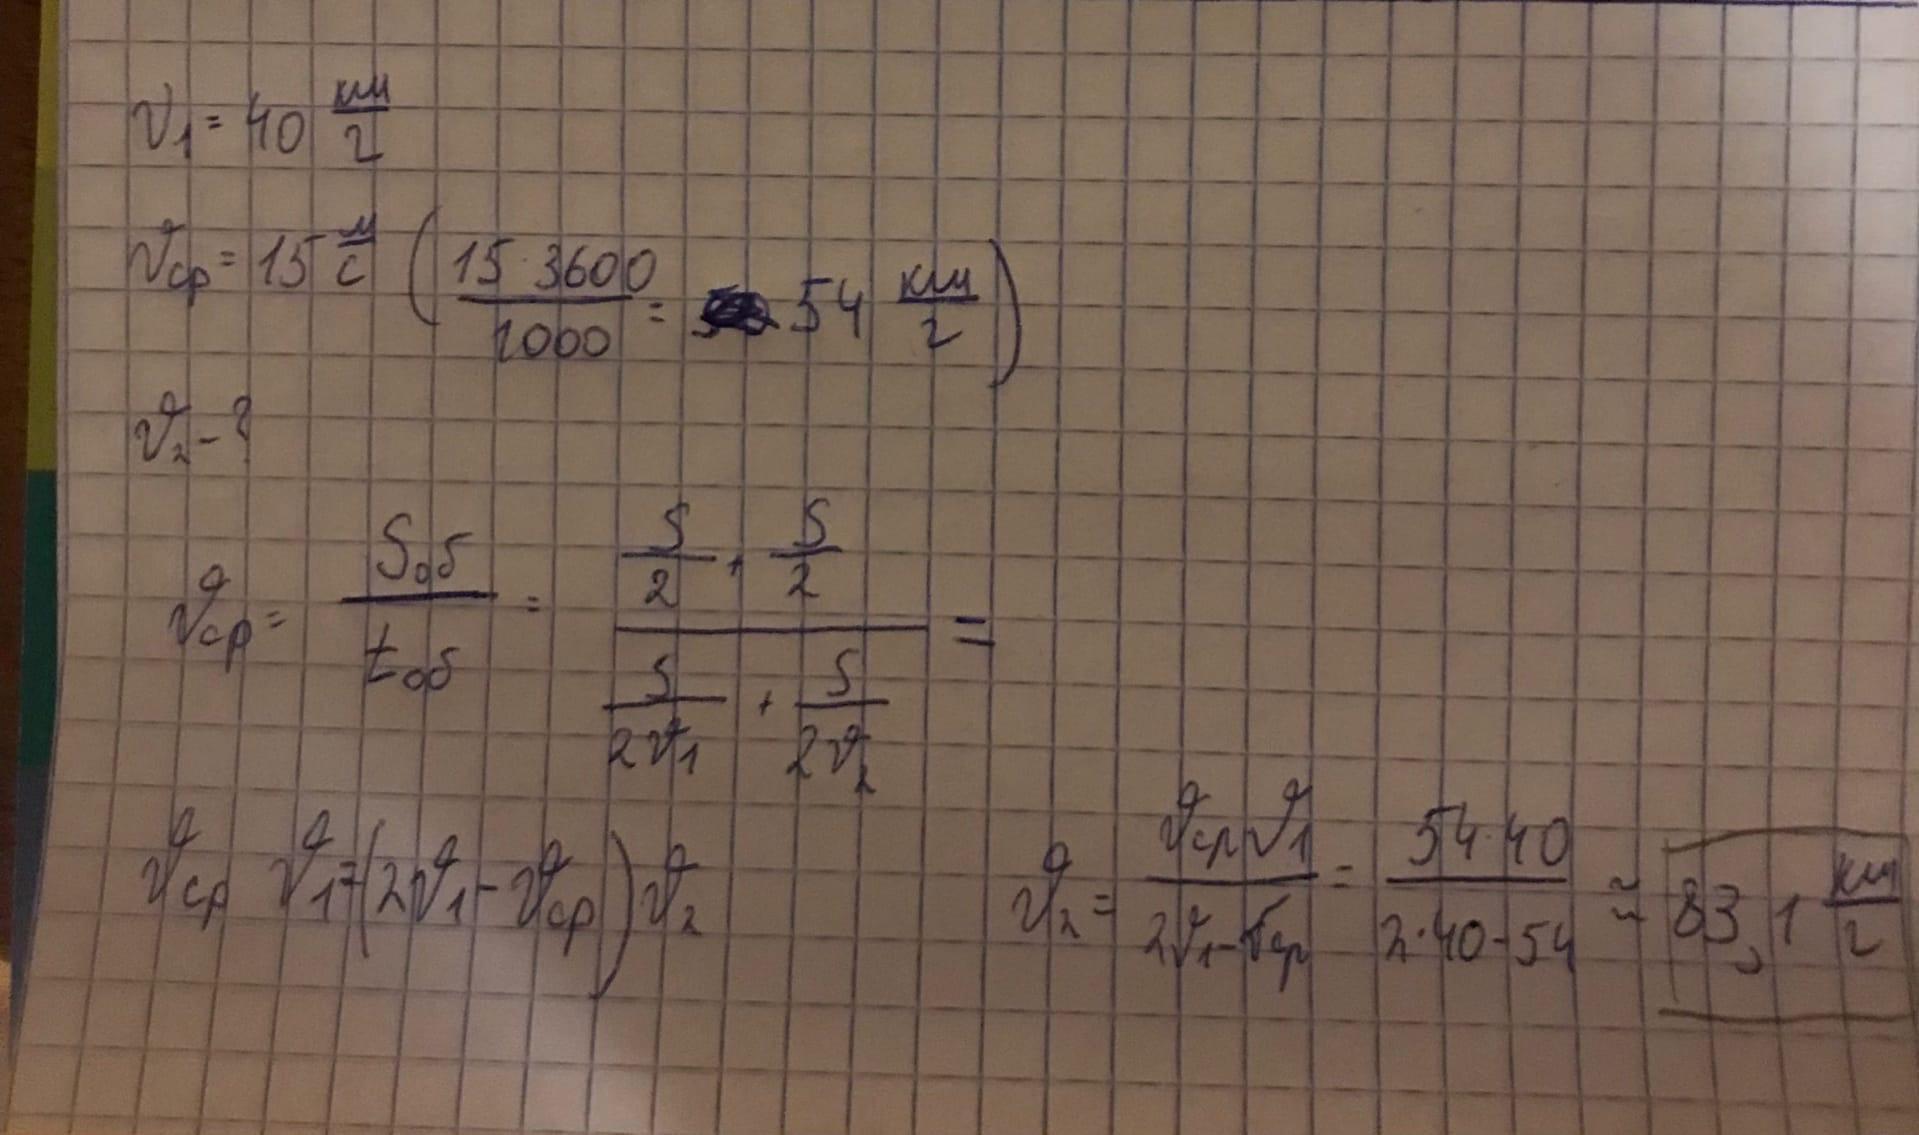 v₁ = 40 км/ч
vср = 15 м/с (15·3600/1000 = 54 км/ч)
v₂ - ?
vср = Sоб/tоб = (S/2 + S/2)/(S/2v₁ + S/2v₂) =
vср v₁ = (2v₁ - vср) v₂
v₂ = vср v₁/(2v₁ - vср) = 54·40/(2·40-54) ≈ 83,1 км/ч